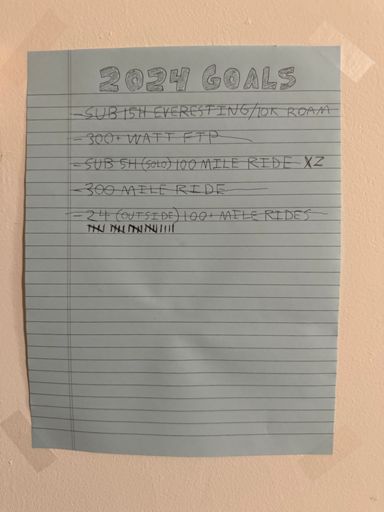 2024 GOALS
- SUB 15H EVERESTING/10K ROAM
- 300+ WATT FTP
- SUB 5H (SOLO) 100 MILE RIDE X2
- 300 MILE RIDE
- 24 (OUTSIDE) 100+ MILE RIDES